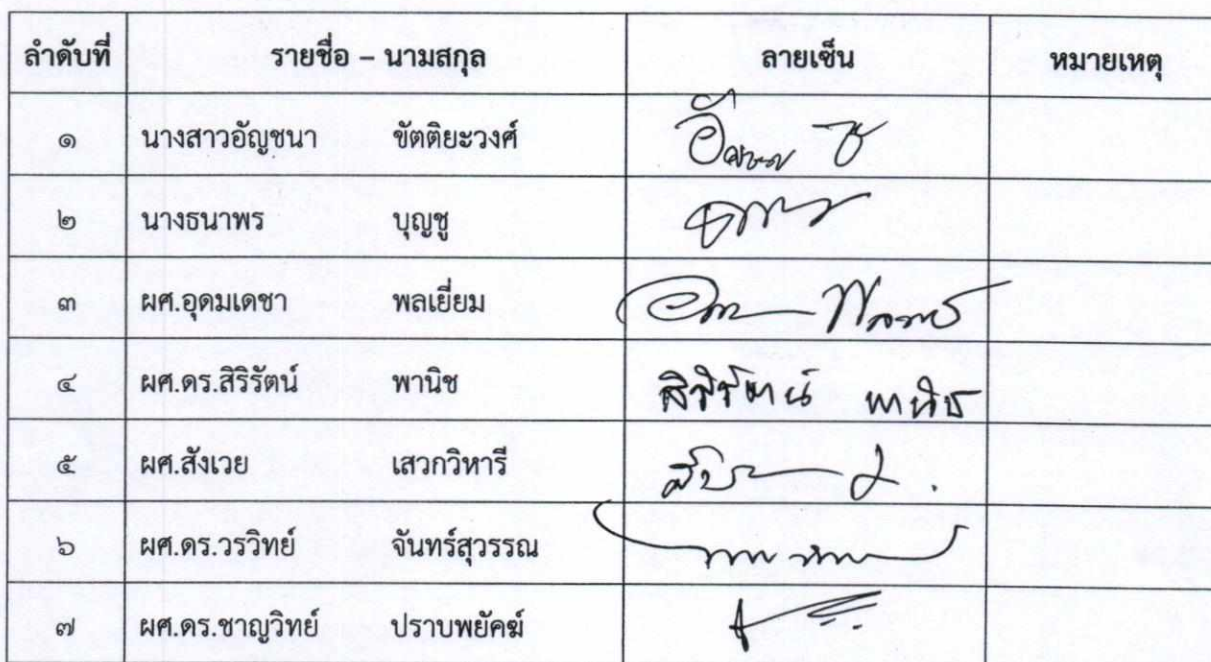 ลำดับที่ รายชื่อ – นามสกุล ลายเซ็น หมายเหตุ
๑ นางสาวอัญชนา ขัตติยะวงศ์
๒ นางธนาพร บุญชู
๓ ผศ.อุดมเดชา พลเยี่ยม
๔ ผศ.ดร.สิริรัตน์ พานิช สิริรัตน์ พานิช
๕ ผศ.สังเวย เสวกวิหารี
๖ ผศ.ดร.วรวิทย์ จันทร์สุวรรณ
๗ ผศ.ดร.ชาญวิทย์ ปราบพยัคฆ์